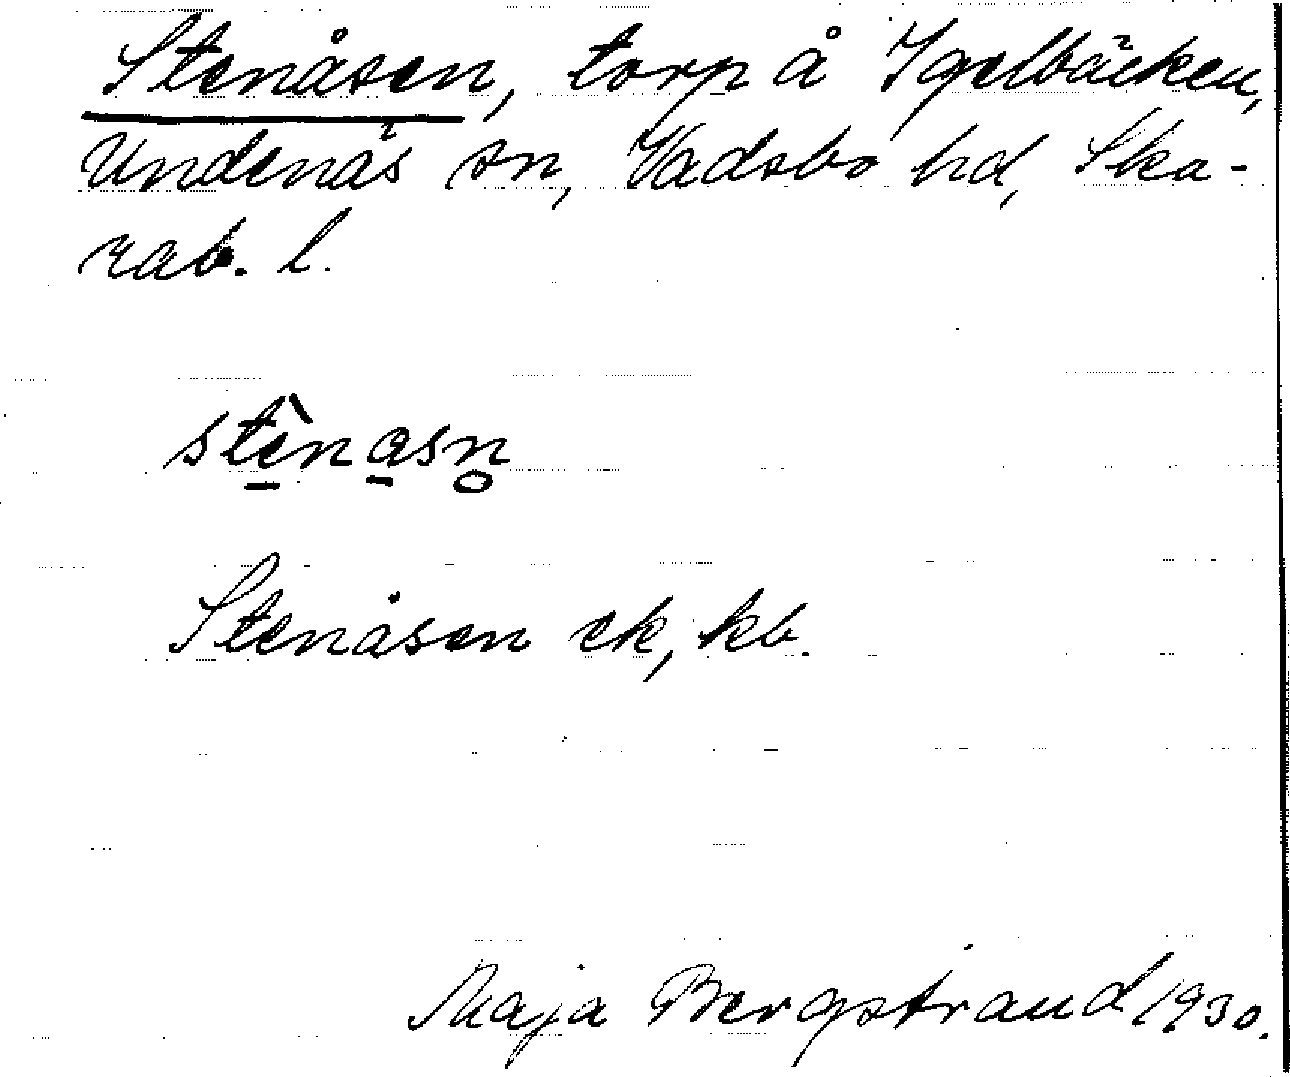 Stenåsen, torp å Igelbäcken,
Undenäs sn, Vadsbo hd, Ska-
rab. l.
stè̱na̱sn̥
Stenåsen ek, kb.
Maja Bergstrand 1930.